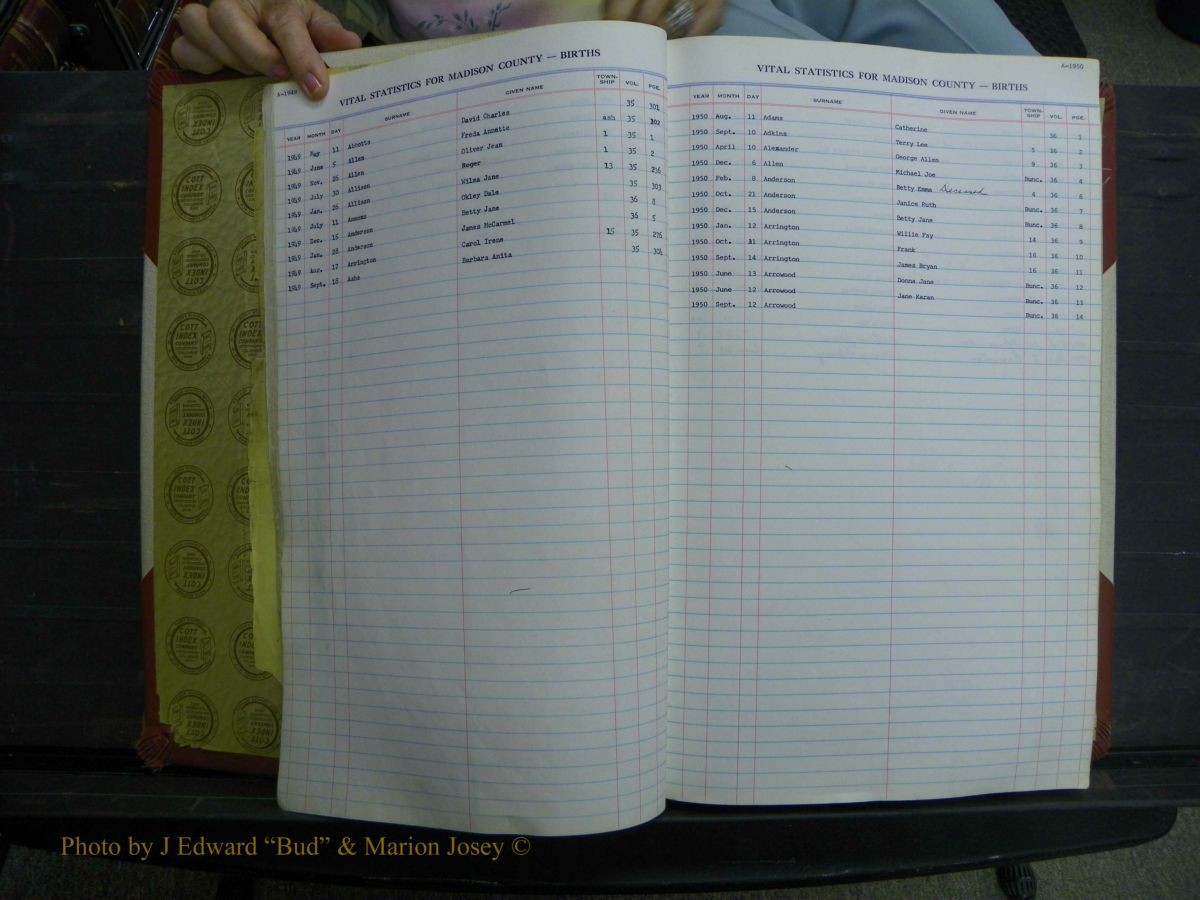 A-1949
VITAL STATISTICS FOR MADISON COUNTY — BIRTHS
YEAR MONTH DAY SURNAME GIVEN NAME TOWN-SHIP VOL. PGE.
1949 May 11 Abbotts David Charles 35 301
1949 June 5 Allen Freda Annette ash 35 302
1949 Nov. 26 Allen Oliver Jean 1 35 1
1949 July 30 Allison Roger 1 35 2
1949 Jan. 26 Allison Wilma Jane 13 35 236
1949 July 11 Ammons Okley Dale 35 303
1949 Dec. 15 Anderson Betty Jane 36 8
1949 Jan. 28 Anderson James McCarmel 36 5
1949 Aug. 17 Arrington Carol Irene 15 35 276
1949 Sept. 18 Ashe Barbara Anita 35 306
A-1950
VITAL STATISTICS FOR MADISON COUNTY — BIRTHS
YEAR MONTH DAY SURNAME GIVEN NAME TOWN-SHIP VOL. PGE.
1950 Aug. 11 Adams Catherine 36 1
1950 Sept. 10 Adkins Terry Lee 5 36 2
1950 April 10 Alexander George Allen 9 36 3
1950 Dec. 6 Allen Michael Joe Bunc. 36 4
1950 Feb. 8 Anderson Betty Emma Deceased 4 36 6
1950 Oct. 21 Anderson Janice Ruth Bunc. 36 7
1950 Dec. 15 Anderson Betty Jane Bunc. 36 8
1950 Jan. 12 Arrington Willie Fay 14 36 9
1950 Oct. 11 Arrington Frank 16 36 10
1950 Sept. 14 Arrington James Bryan 16 36 11
1950 June 13 Arrowood Donna Jane Bunc. 36 12
1950 June 12 Arrowood Jane Karan Bunc. 36 13
1950 Sept. 12 Arrowood Bunc. 36 14
COTT INDEX COMPANY
Photo by J Edward “Bud” & Marion Josey ©